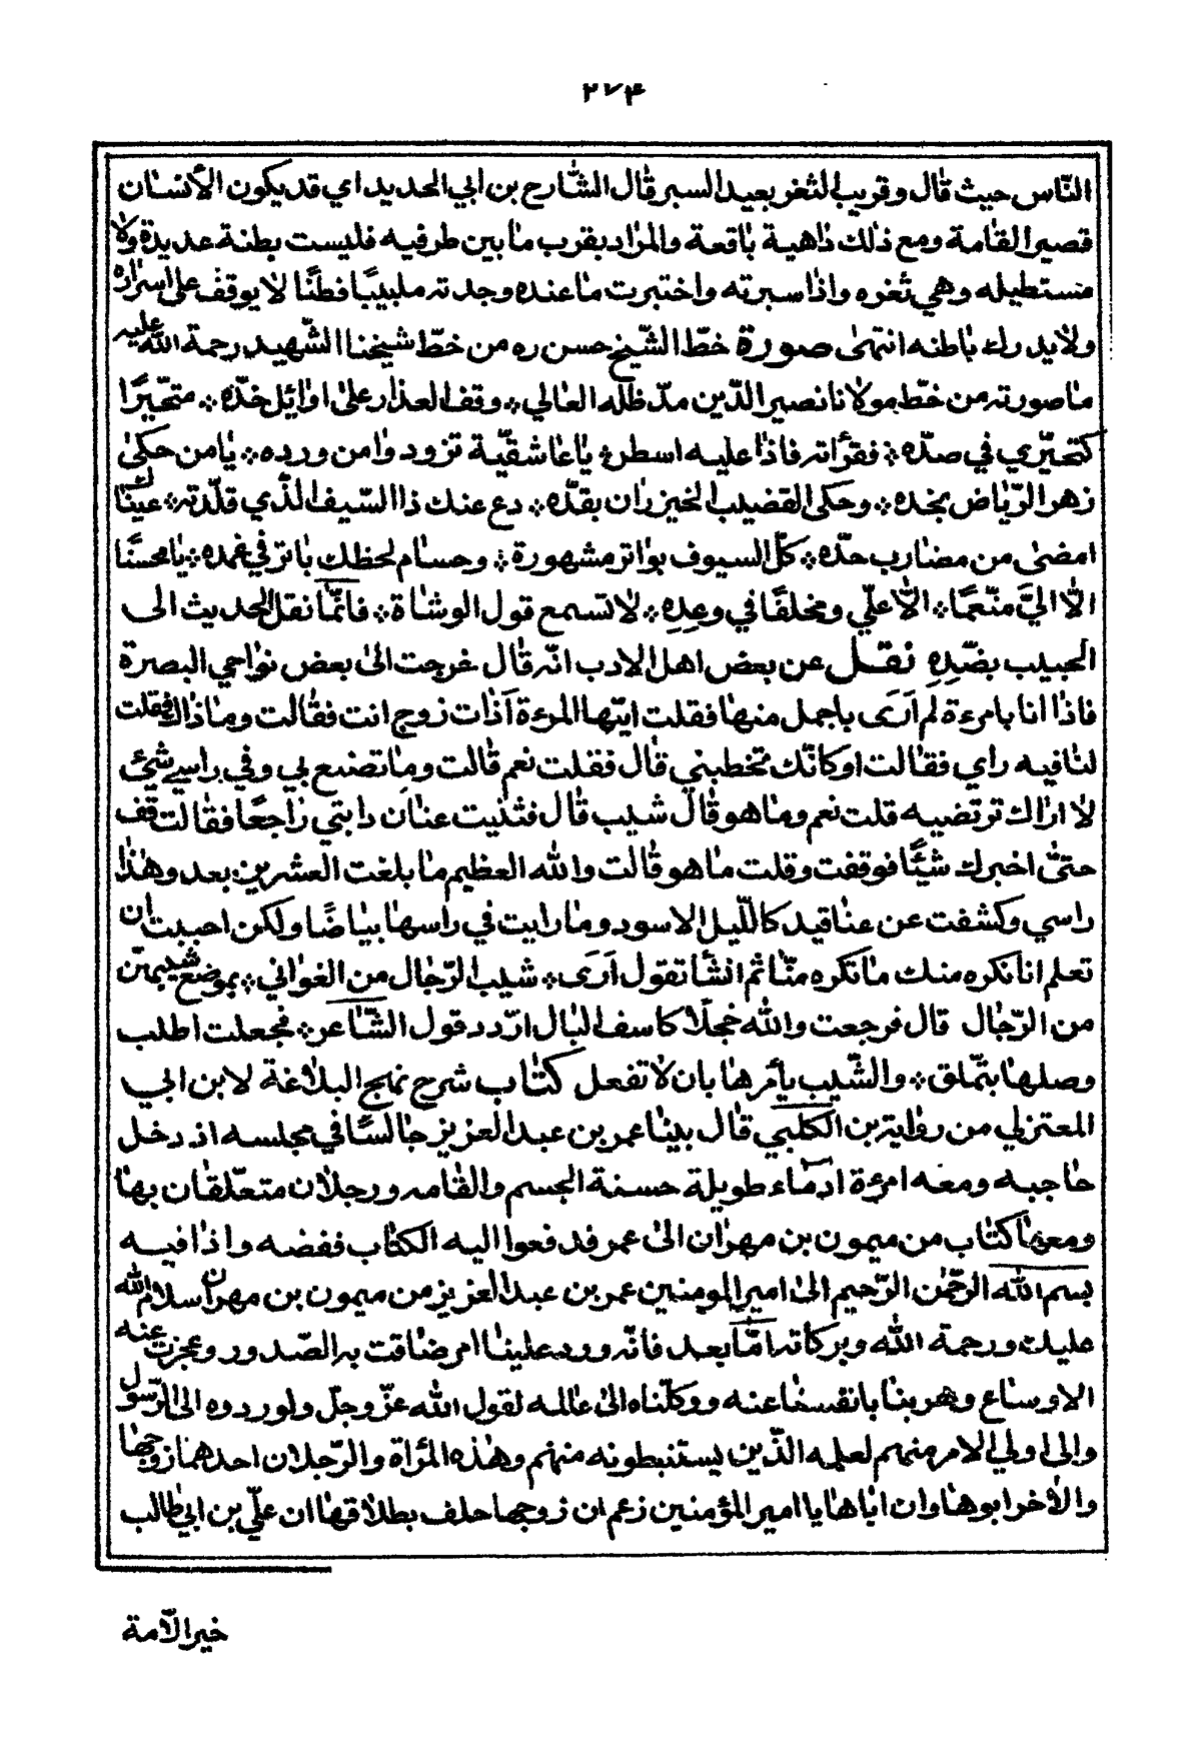 ٢٧۴
النّاس حيث قال وقريب الثغر بعيد السبر قال الشّارح بن ابي الحديد اي قد يكون الأنسان
قصير القامة ومع ذلك داهية باقعة والمراد بقرب ما بين طرفيه فليست بطنة عديدة ولا
مستطيله وهي ثغره واذا سبرته واختبرت ما عنده وجدته ملبيبًا فطنًا لا يوقف على اسراره
ولا يدرك باطنه انتهى صورة خطّ الشّيخ حسن ره من خطّ شيخنا الشّهيد رحمة الله عليه
ما صورته من خطّ مولانا نصير الدّين مدّ ظلّه العالي * وقف العذار على اوائل خدّه * متحيّرًا
كتحيّري في صدّه * فقرأته فاذا عليه اسطر * يا عاشقيّة تزود وا من ورده * يا من حكى
زهر الرّياض بخده * وحكى القضيب الخيزران بقدّه * دع عنك ذا السّيف الّذي قلّدته * عيناك
امضى من مضارب حدّه * كلّ السيوف بواتر مشهورة * وحسام لحظك باتر في غمده * يا محسنًا
الّا اليَّ منّعمًا * الّا علّي ومخلفًا في وعدِهِ * لا تسمع قول الوشاة * فانّما نقل الحديث الى
الحبيب بضّدِهِ نقل عن بعض اهل الادب انّه قال خرجت الى بعض نواحي البصرة
فاذا انا بامرءة لم آرَى باجمل منها فقلت ايتها المرءة آذات زوج انت فقالت وما ذاك فقلت
لنا فيه راي فقالت او كانّك تخطبني قال فقلت نعم قالت وما تصنع بي وفي راسي شئ
لا اراك ترتضيه قلت نعم وما هو قال شيب قال فثنيت عنان دابتي راجعًا فقالت قف
حتى اخبرك شيًّا فوقفت وقلت ما هو قالت والله العظيم ما بلغت العشرين بعد وهذا
راسي وكشفت عن عناقيد كاللّيل الاسود وما رايت في راسها بياضًا ولكن احببت ان
تعلم انا نكره منك ما تكره منّا ثم انشأ تقول آرَى * شيب الرّجال من الغواني * بموضع شيبهنّ
من الرّجال قال فرجعت والله خجلًا كاسف البال ارّدد قول الشّاعر * فجعلت اطلب
وصلها بتملّق * والشّيب يأمرها بان لا تفعل كتاب شرح نهج البلاغة لابن ابي
المعتزلي من رواية بن الكلبي قال بينا عمر بن عبد العزيز جالسًا في مجلسه اذ دخل
حاجبه ومعه امرءة ادماء طويلة حسنة الجسم والقامه ورجلان متعلّقان بها
ومعها كتاب من ميمون بن مهران الى عمر فدفعوا اليه الكتاب ففضه واذا فيه
بسم الله الرّحمن الرّحيم الى امير المومنين عمر بن عبد العزيز من ميمون بن مهران سلام الله
عليك ورحمة الله وبركاته امّا بعد فانّه ورد علينا امر ضاقت به الصّدور وعجزت عنه
الاوساع وهربنا بانفسنا عنه ووكلّناه الى عالمه لقول الله عزّ وجلّ ولو ردوه الى الرّسول
والى اولي الامر منهم لعلمه الّذين يستنبطونه منهم وهذه المرأة والرّجلان احدهما زوجها
والأخر ابوها وان اباها يا امير المؤمنين زعم ان زوجها حلف بطلاقها ان علّي بن ابي طالب
خير الأمة